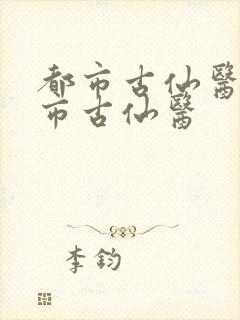 都市古仙醫
市古仙醫
李鈞